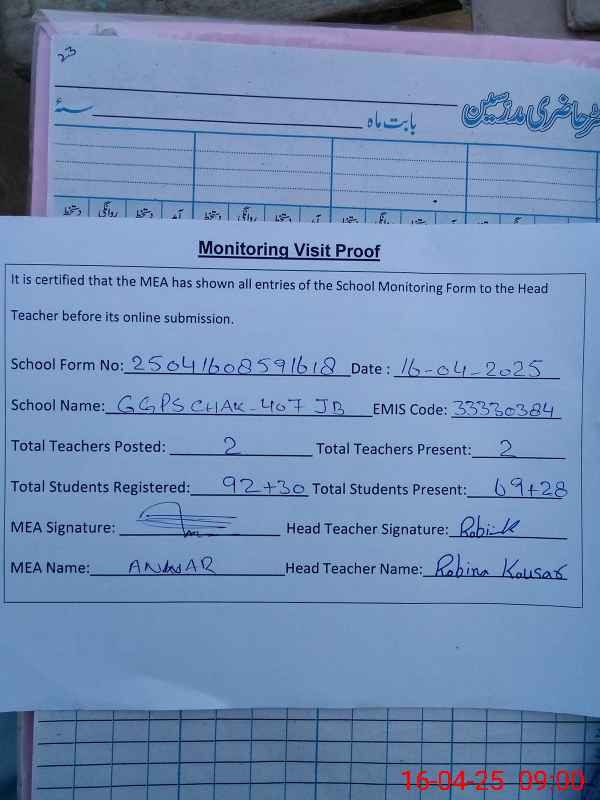 23
رجسٹر حاضری مدرسین
بابت ماہ سنۂ
دستخط روانگی دستخط آمد دستخط روانگی دستخط آمد دستخط روانگی دستخط
Monitoring Visit Proof
It is certified that the MEA has shown all entries of the School Monitoring Form to the Head
Teacher before its online submission.
School Form No: 25041608591618 Date : 16-04-2025
School Name: GGPS CHAK-407 JB EMIS Code: 33330384
Total Teachers Posted: 2 Total Teachers Present: 2
Total Students Registered: 92+30 Total Students Present: 69+28
MEA Signature: Head Teacher Signature: Robi.K
MEA Name: ANWAR Head Teacher Name: Robina Kousar
16-04-25 09:00